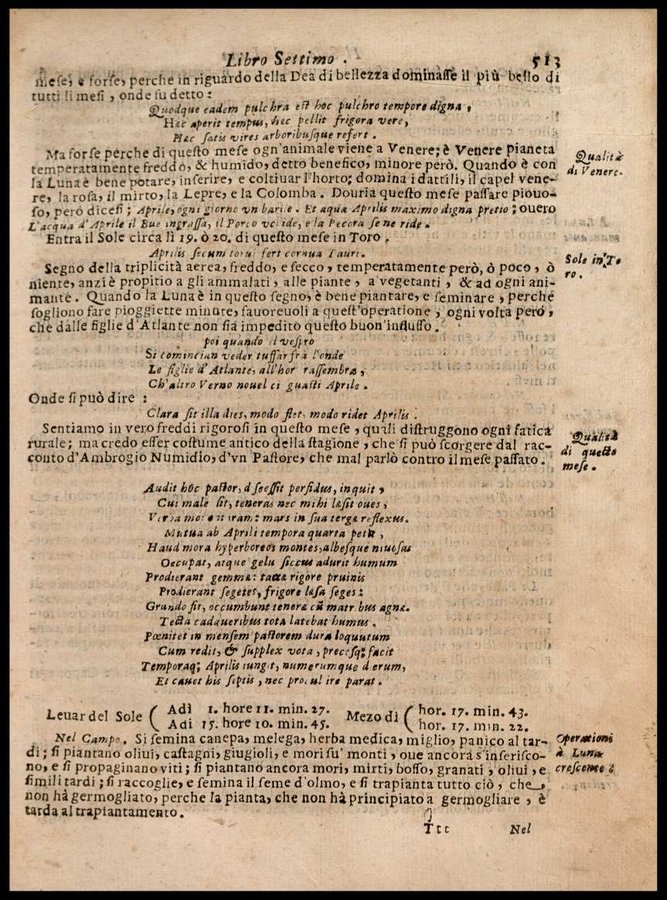 Libro Settimo . 513
mese, e forse, perche in riguardo della Dea di bellezza dominasse il più bello di
tutti li mesi , onde su detto :
Quodque eadem pulchra est hoc pulchro tempore digna ,
Hæc aperit tempus, hæc pellit frigora vere,
Hæc satis vires arboribusque refert .
Ma forse perche di questo mese ogn'animale viene a Venere; è Venere pianeta
temperatamente freddo, & humido, detto benefico, minore però. Quando è con
la Luna è bene potare, inserire, e coltiuar l'horto; domina i dattili, il capel vene-
re, la rosa, il mirto, la Lepre, e la Colomba . Douria questo mese passare piouo-
so, però dicesi ; Aprile, ogni giorno vn barile . Et aqua Aprilis maximo digna pretio ; ouero
L'acqua d'Aprile il Bue ingrassa, il Porco vccide, e la Pecora se ne ride .
Entra il Sole circa li 19. ò 20. di questo mese in Toro .
Aprilis secum torui fert cornua Tauri .
Segno della triplicità aerea, freddo, e secco, temperatamente però, ò poco , ò
niente, anzi è propitio a gli ammalati , alle piante , a vegetanti , & ad ogni ani-
mante . Quando la Luna è in questo segno, è bene piantare, e seminare , perche
sogliono fare pioggiette minute, fauoreuoli a quest'operatione , ogni volta però ,
che dalle figlie d'Atlante non sia impedito questo buon'influsso .
poi quando il vespro
Si comincian veder tuffar frà l'onde
Le figlie d'Atlante, all'hor rassembra ,
Ch'altro Verno nouel ci guasti Aprile .
Onde si può dire :
Clara sit illa dies, modo flet, modo ridet Aprilis .
Sentiamo in vero freddi rigorosi in questo mese , quali distruggono ogni fatica
rurale; ma credo esser costume antico della stagione , che si può scorgere dal rac-
conto d'Ambrogio Numidio, d'vn Pastore, che mal parlò contro il mese passato .
Audit hoc pastor, discessit perfidus, inquit ,
Cui male sit, teneras nec mihi læsit oues ,
mars in sua terga reflexus.
Mutua ab Aprili tempora quarta petit ,
Haud mora hyperboreos montes, albesque niuosas
Occupat, atque gelu siccus adurit humum
Prodierant gemmæ: tactæ rigore pruinis
Prodierant segetes, frigore læsa seges :
Grando fit, occumbunt teneræ cũ matribus agnæ.
Tecta cadaueribus tota latebat humus .
Pœnitet in mensem pastorem dura loquutum
Cum redit, & supplex vota , precesq; facit
Temporaq; Aprilis iungit, numerumque dierum,
Et cauet his septis , nec procul ire parat .
Leuar del Sole ( Adì 1. hore 11. min. 27. Mezo dì ( hor. 17. min. 43.
Adì 15. hore 10. min. 45. hor. 17. min. 22.
Nel Campo. Si semina canepa, melega, herba medica, miglio, panico al tar-
di; si piantano oliui, castagni, giugioli, e mori su' monti , oue ancora s'inserisco-
no, e si propaginano viti ; si piantano ancora mori, mirti, bosso, granati , oliui , e
simili tardi ; si raccoglie, e semina il seme d'olmo, e si trapianta tutto ciò , che
non hà germogliato, perche la pianta, che non hà principiato a germogliare , è
tarda al trapiantamento .
Ttt Nel
Qualità
di Venere.
Sole in To
ro .
Qualità
di questo
mese .
Operationi
à Luna
crescente